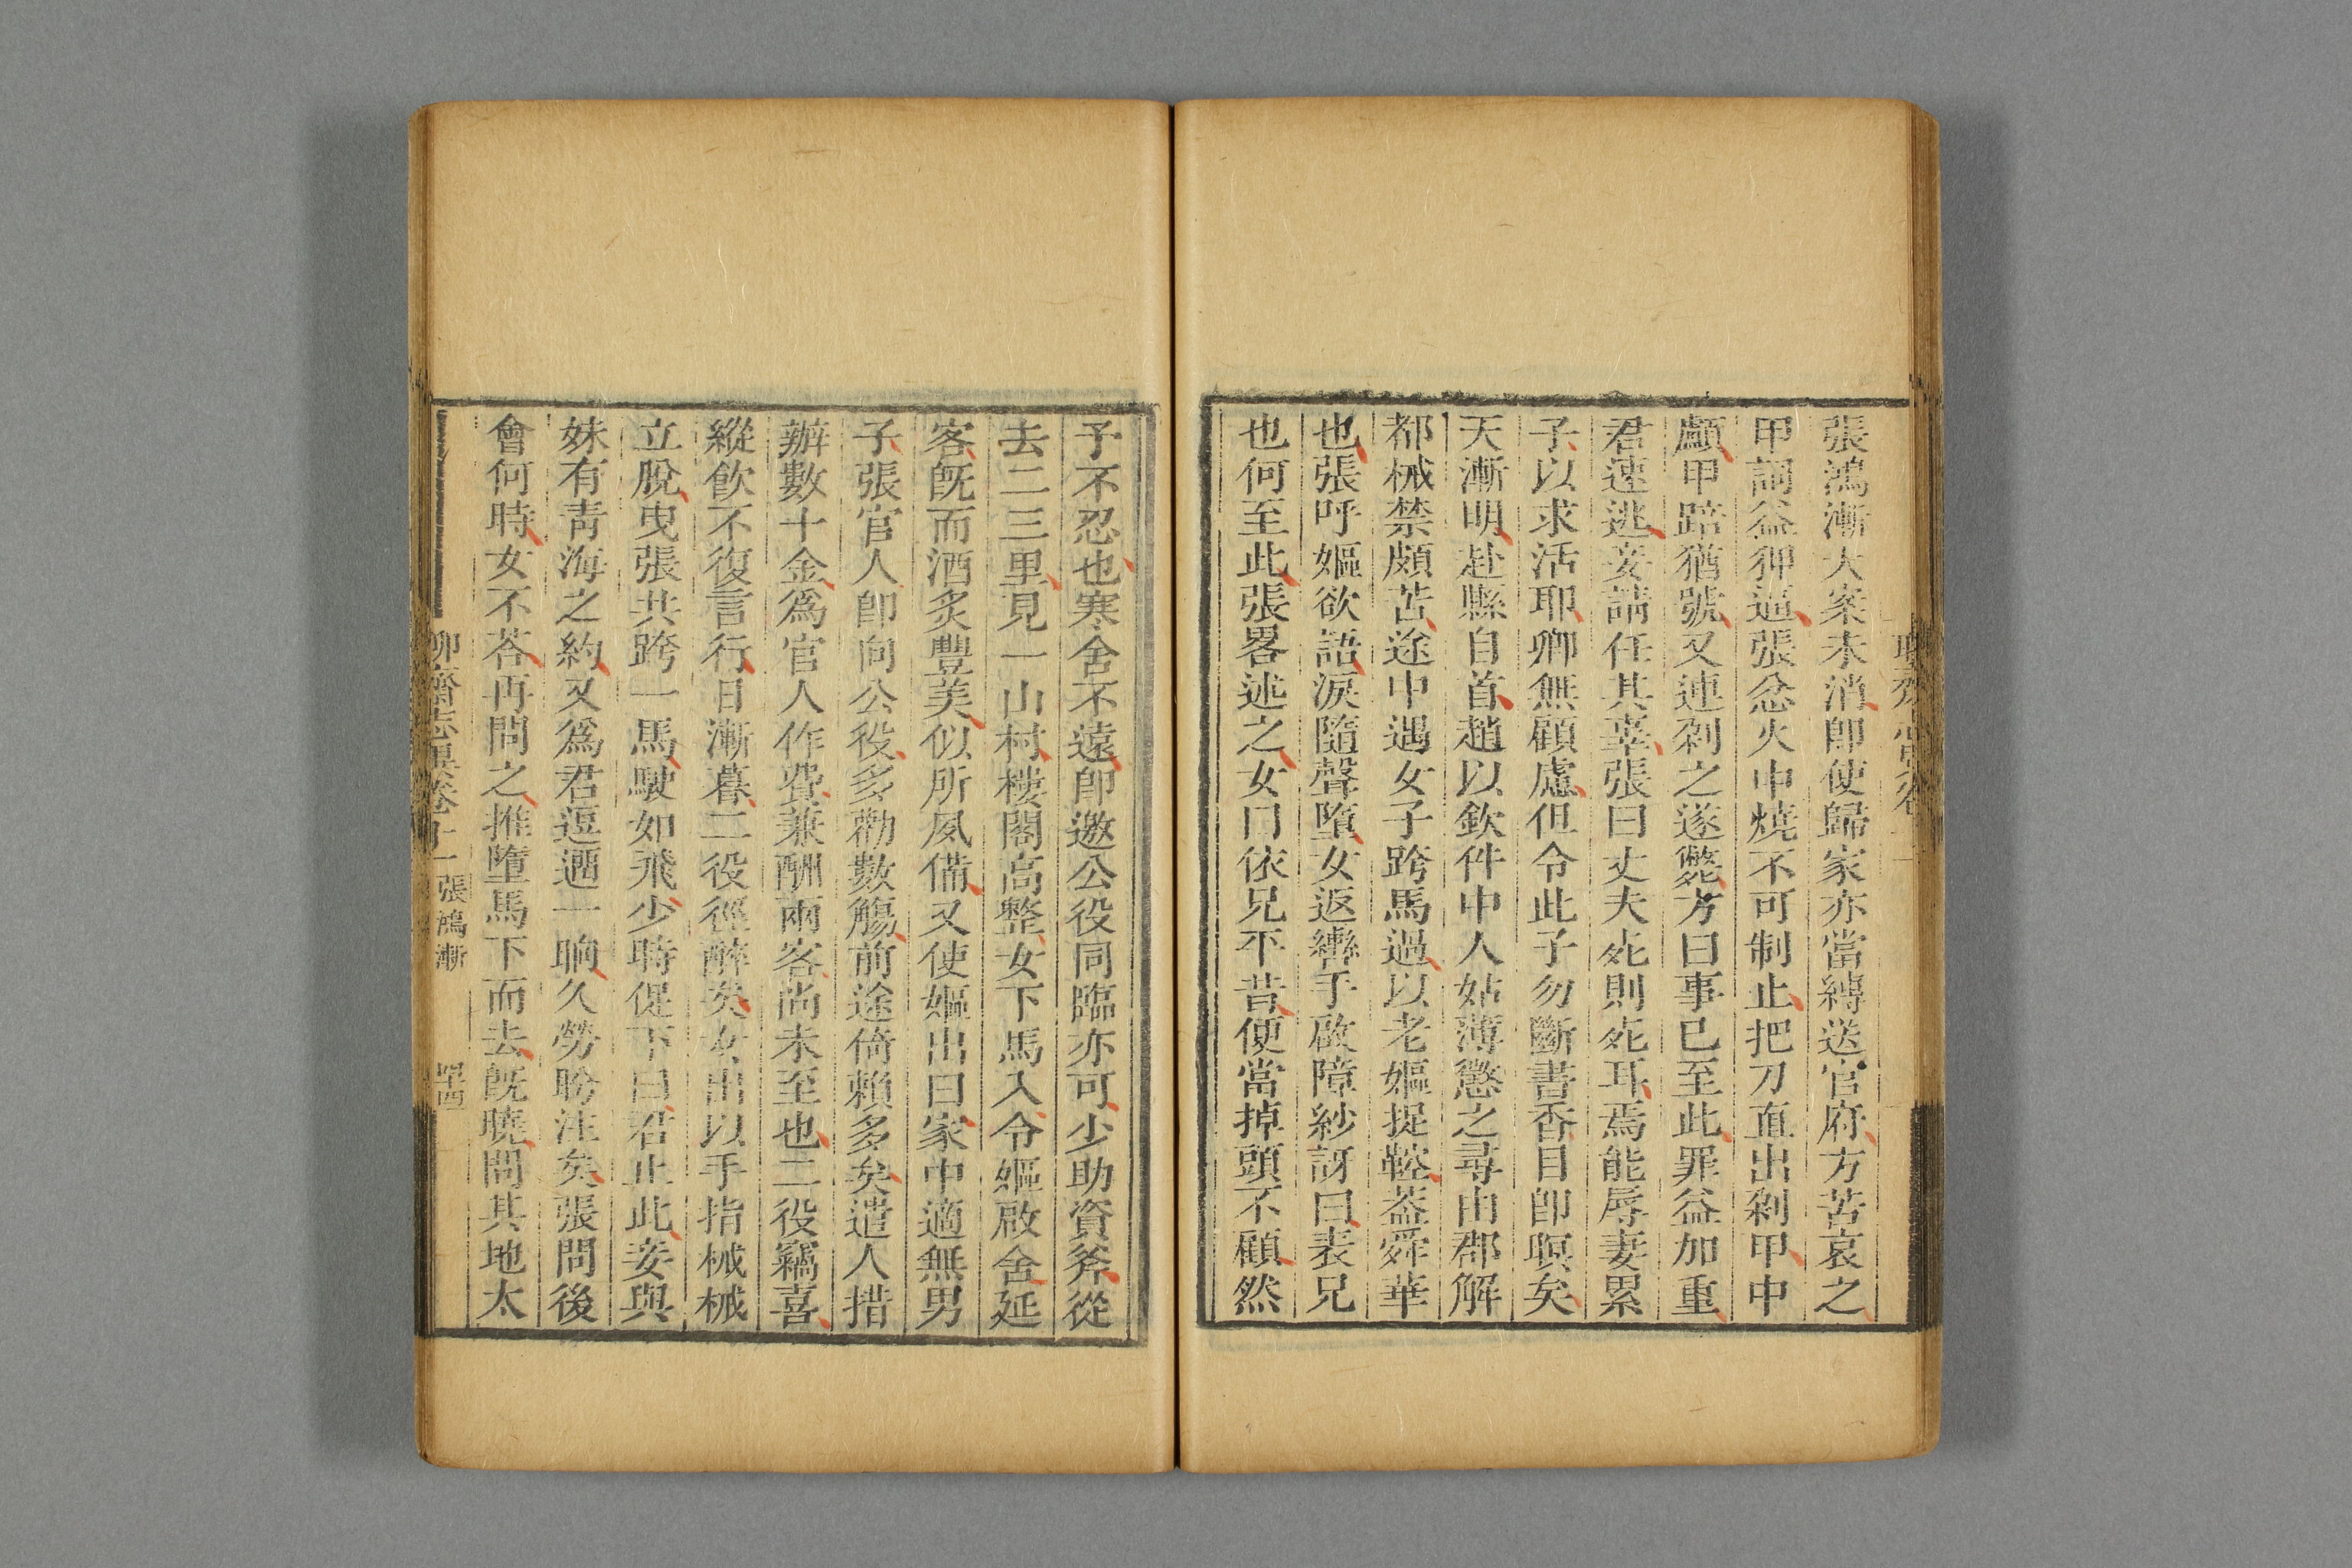 張鴻漸大案未消卽使歸家亦當縛送官府方苦哀之
甲詞益狎逼張忿火中燒不可制止把刀直出剁甲中
顱甲踣猶號又連剁之遂斃方曰事已至此罪益加重
君速逃妾請任其辜張曰丈夫死則死耳焉能辱妻累
子以求活耶卿無顧慮但令此子勿斷書香目卽瞑矣
天漸明赴縣自首趙以欽件中人姑薄懲之尋由郡解
都械禁頗苦途中遇女子跨馬過以老嫗捉鞚葢舜華
也張呼嫗欲語淚隨聲墮女返轡手啟障紗訝曰表兄
也何至此張畧述之女曰依兄平昔便當掉頭不顧然
予不忍也寒舍不遠卽邀公役同臨亦可少助資斧從
去二三里見一山村樓閣高整女下馬入令嫗啟舍延
客旣而酒炙豐美似所夙備又使嫗出曰家中適無男
子張官人卽向公役多勸數觴前途倚賴多矣遣人措
辦數十金爲官人作費兼酬兩客尚未至也二役竊喜
縱飲不復言行日漸暮二役徑醉矣女出以手指械械
立脫曳張共跨一馬駛如飛少時促下曰君止此妾與
妹有青海之約又爲君逗遛一晌久勞盻注矣張問後
會何時女不荅再問之推墮馬下而去旣曉問其地太
聊齋志異卷十一 張鴻漸 四